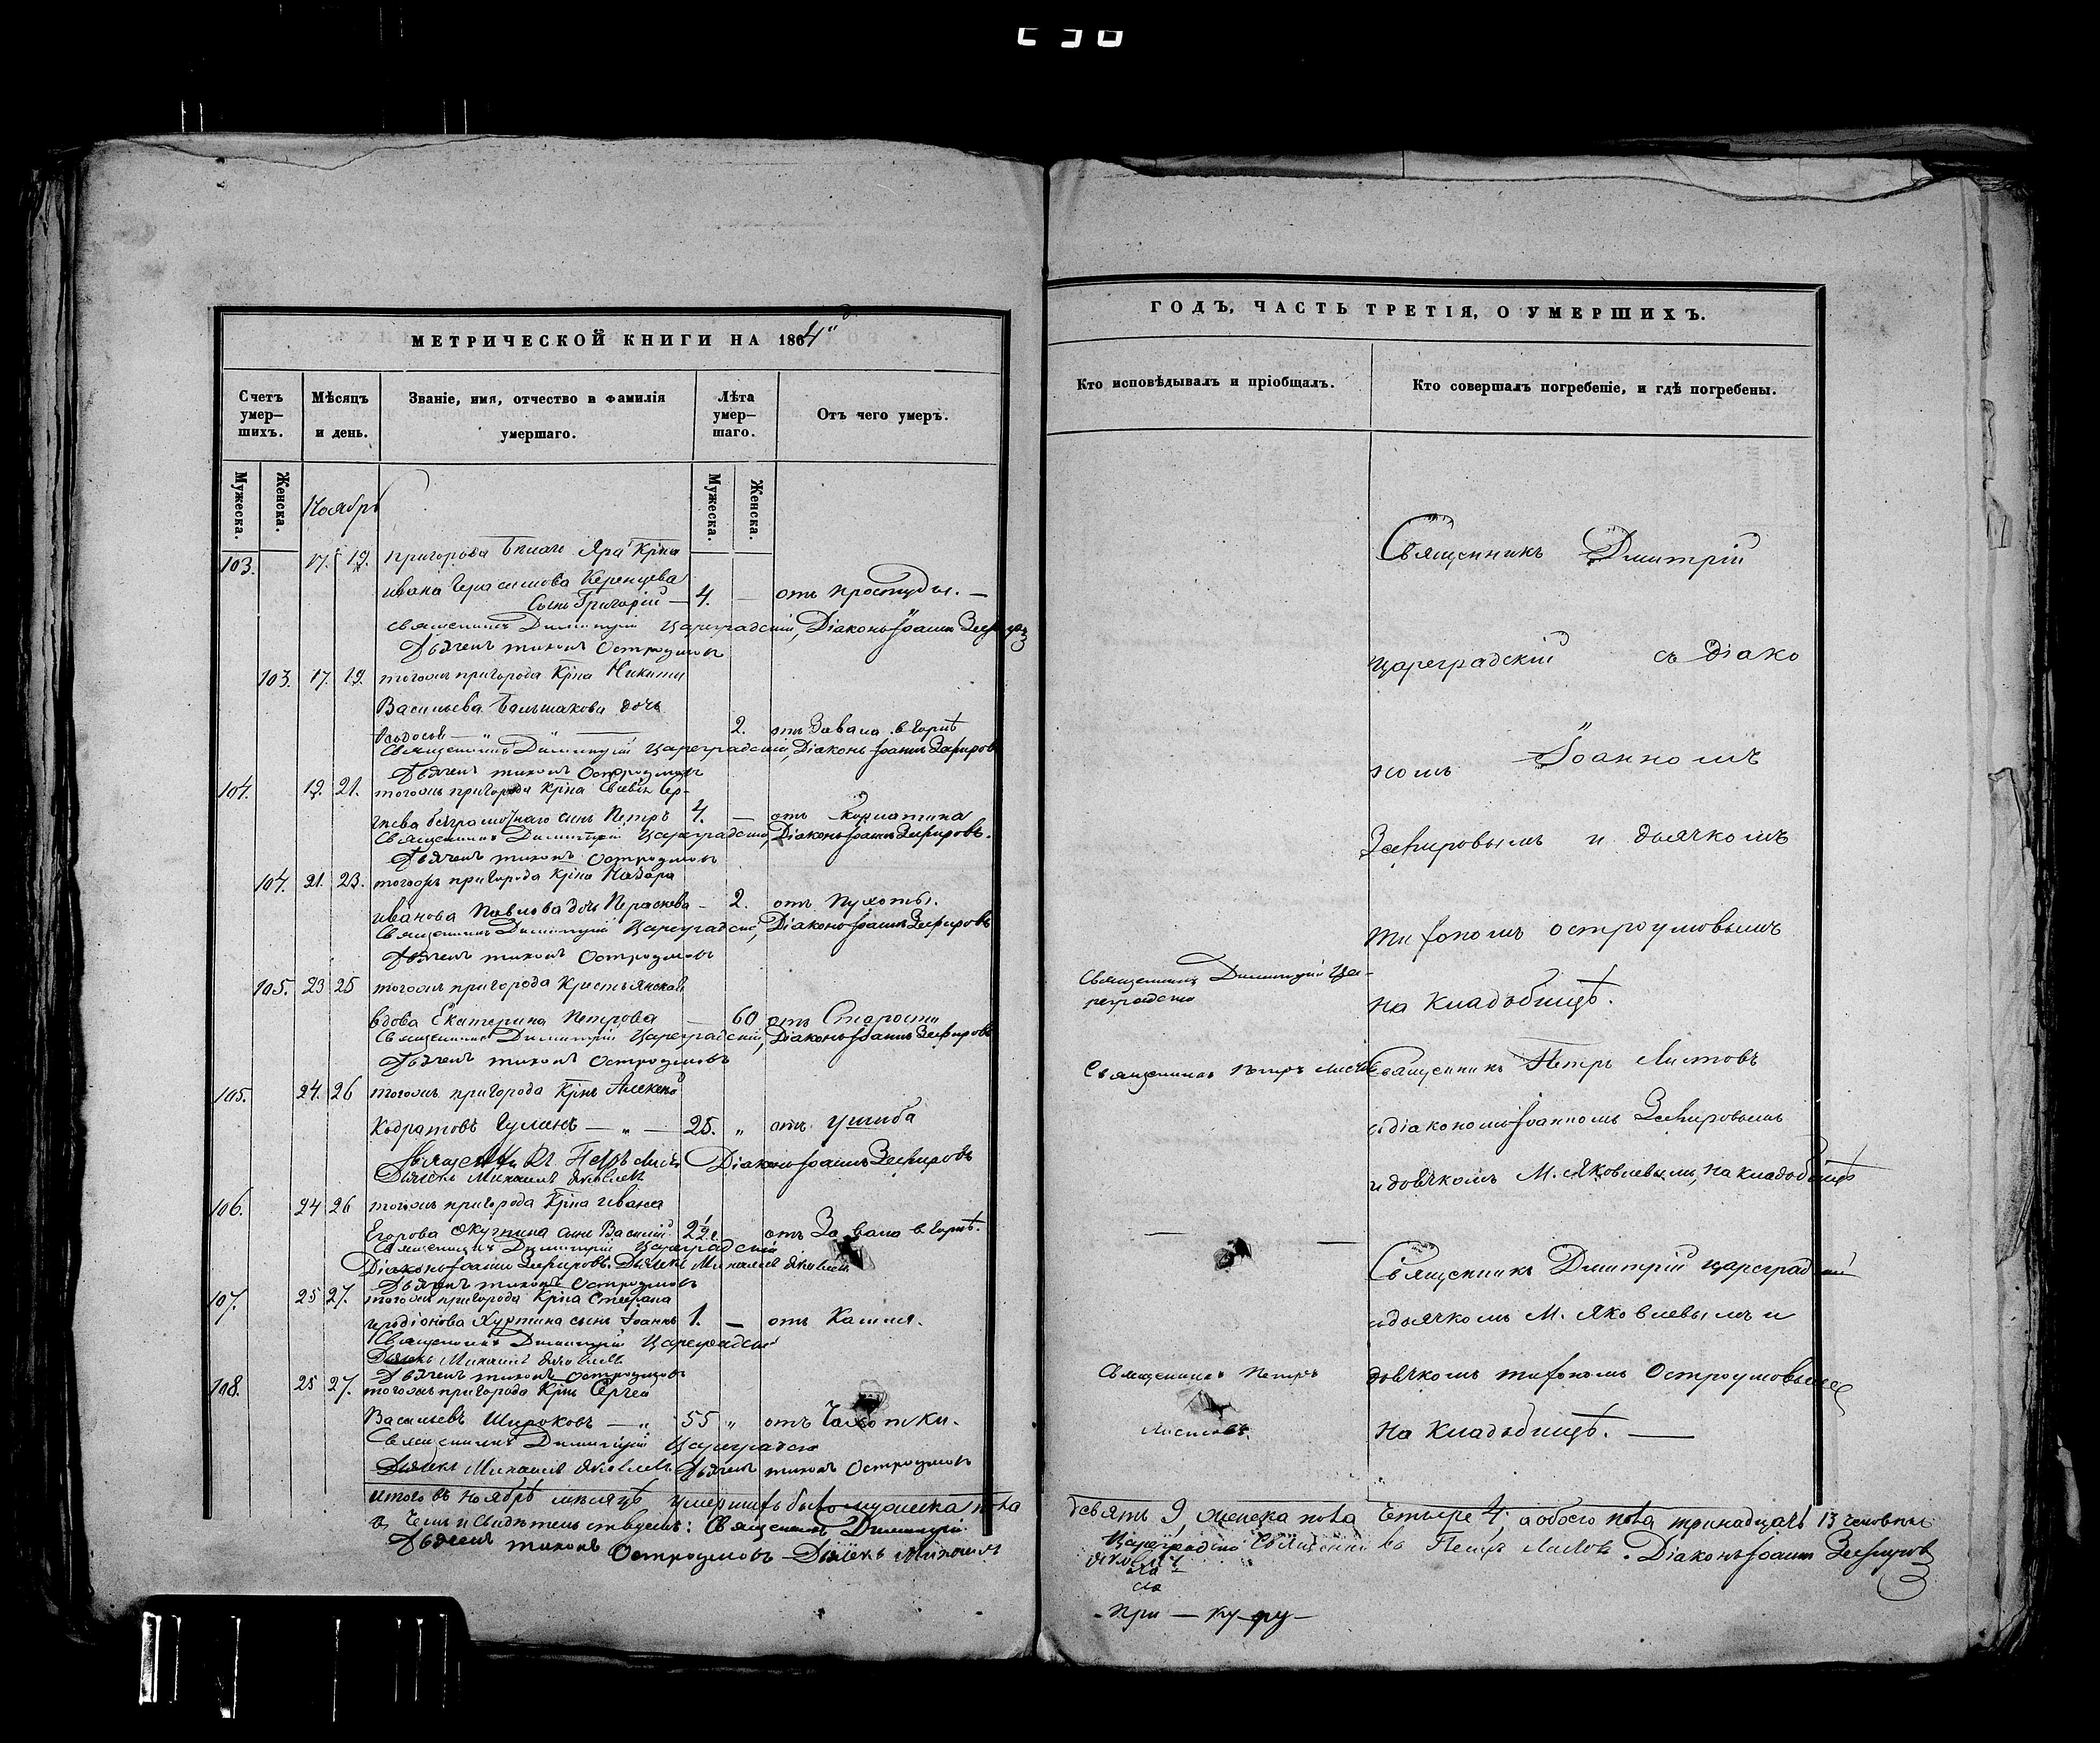 МЕТРИЧЕСКОЙ КНИГИ НА 1864
Счетъ умер-шихъ.
Мѣсяцъ и день.
Званіе, имя, отчество и фамилія умершаго.
Лѣта умер-шаго.
Отъ чего умеръ.
Мужеска.
Женска.
Мужеска.
Женска.
Ноябрь
103. 17. 19. пригорода Яра Крⷭна
Ивана Герасимова Керенцева
Сынъ Григорій — 4. — отъ простуды. —
Священникъ Димитрій Цареградскій, Діаконъ Іоаннъ Зефировъ
Дьячекъ тихонъ Остроумовъ
103. 17. 19. тогожъ пригорода Крⷭна Никиты
Васильева Балшакова дочь
2. отъ Завала в горлѣ
Священникъ Димитрій Цареградскій, Діаконъ Іоаннъ Зефировъ
Дьячекъ тихонъ Остроумовъ
104. 19. 21. тогожъ пригорода Крⷭна
сынъ Петръ 4. — отъ
Священникъ Димитрій Цареградскій, Діаконъ Іоаннъ Зефировъ.
Дьячекъ тихонъ Остроумовъ
104. 21. 23. тогожъ пригорода Крⷭна Назара
Иванова Павлова дочь Параскева — 2. отъ
Священникъ Димитрій Цареградскій, Діаконъ Іоаннъ Зефировъ
Дьячекъ тихонъ Остроумовъ
105. 23 25 тогожъ пригорода Крестьянская
вдова Екатерина Петрова — 60 отъ Старости
Священникъ Димитрій Цареградскій, Діаконъ Іоаннъ Зефировъ
Дьячекъ тихонъ Остроумовъ
105. 24. 26 тогожъ пригорода Крⷭнъ Алексѣй
Кодратовъ — „ — 25. „ отъ ушиба
Священникъ Петръ Листовъ Діаконъ Іоаннъ Зефировъ
Дьячекъ Михаилъ Яковлевъ
106. 24 26 тогожъ пригорода Крⷭна Ивана
Егорова сынъ Василій отъ Завала в горлѣ.
Священникъ Димитрій Цареградскій
Діаконъ Іоаннъ Зефировъ. Дьячекъ Михаилъ Яковлевъ
Дьячекъ тихонъ Остроумовъ
107. 25 27. тогожъ пригорода Крⷭна Стефана
Иродіонова Куртина сынъ Іоаннъ 1. — отъ Кашля.
Священникъ Димитрій Цареградскій
Дьячекъ Михаилъ Яковлевъ
Дьячекъ тихонъ Остроумовъ
108. 25 27. тогожъ пригорода Крⷭнъ Сергей
Васильевъ Широковъ — „ 55 „ отъ Чахотки.
Священникъ Димитрій Цареградскій
Дьячекъ Михаилъ Яковлевъ Дьячекъ тихонъ Остроумовъ
Итого въ Ноябрѣ мѣсяцѣ умершихъ было мужеска пола
в чемъ и свидѣтельствуемъ: Священникъ Димитрій
Дьячекъ тихонъ Остроумовъ Дьячекъ Михаилъ
ГОДЪ, ЧАСТЬ ТРЕТІЯ, О УМЕРШИХЪ.
Кто исповѣдывалъ и пріобщалъ.
Кто совершалъ погребеніе, и гдѣ погребены.
Священникъ Дмитрій
Цареградскій съ діако
номъ Іоанномъ
Зефировымъ и дьячкомъ
тихономъ остроумовымъ
на кладбищѣ.
Священникъ Димитрій Ца-
реградскій
Священникъ Петръ Листовъ
Священникъ Петръ Листовъ
съ діакономъ Іоанномъ Зефировымъ
и дьячкомъ М. Яковлевымъ, на кладбищѣ
Священникъ Дмитрій Цареградскій
съ дьячкомъ М. Яковлевымъ и
дьячкомъ тихономъ Остроумовымъ
на кладбищѣ. —
Священникъ Петръ
Листовъ.
девять 9, женска пола четыре 4, а обоего пола тринадцать 13 человѣкъ
Цареградскій Священникъ Петръ Листовъ. Діаконъ Іоаннъ Зефировъ
Яковлевъ
- при — ку-ру —